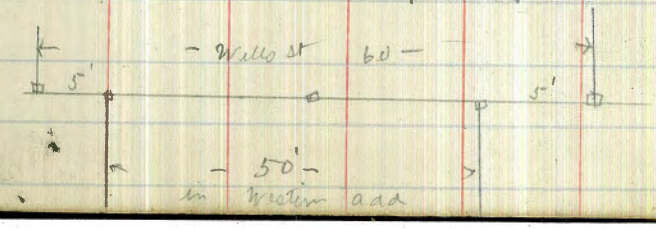 - Wells St 60 -
5' 5'
- 50' -
in Western add